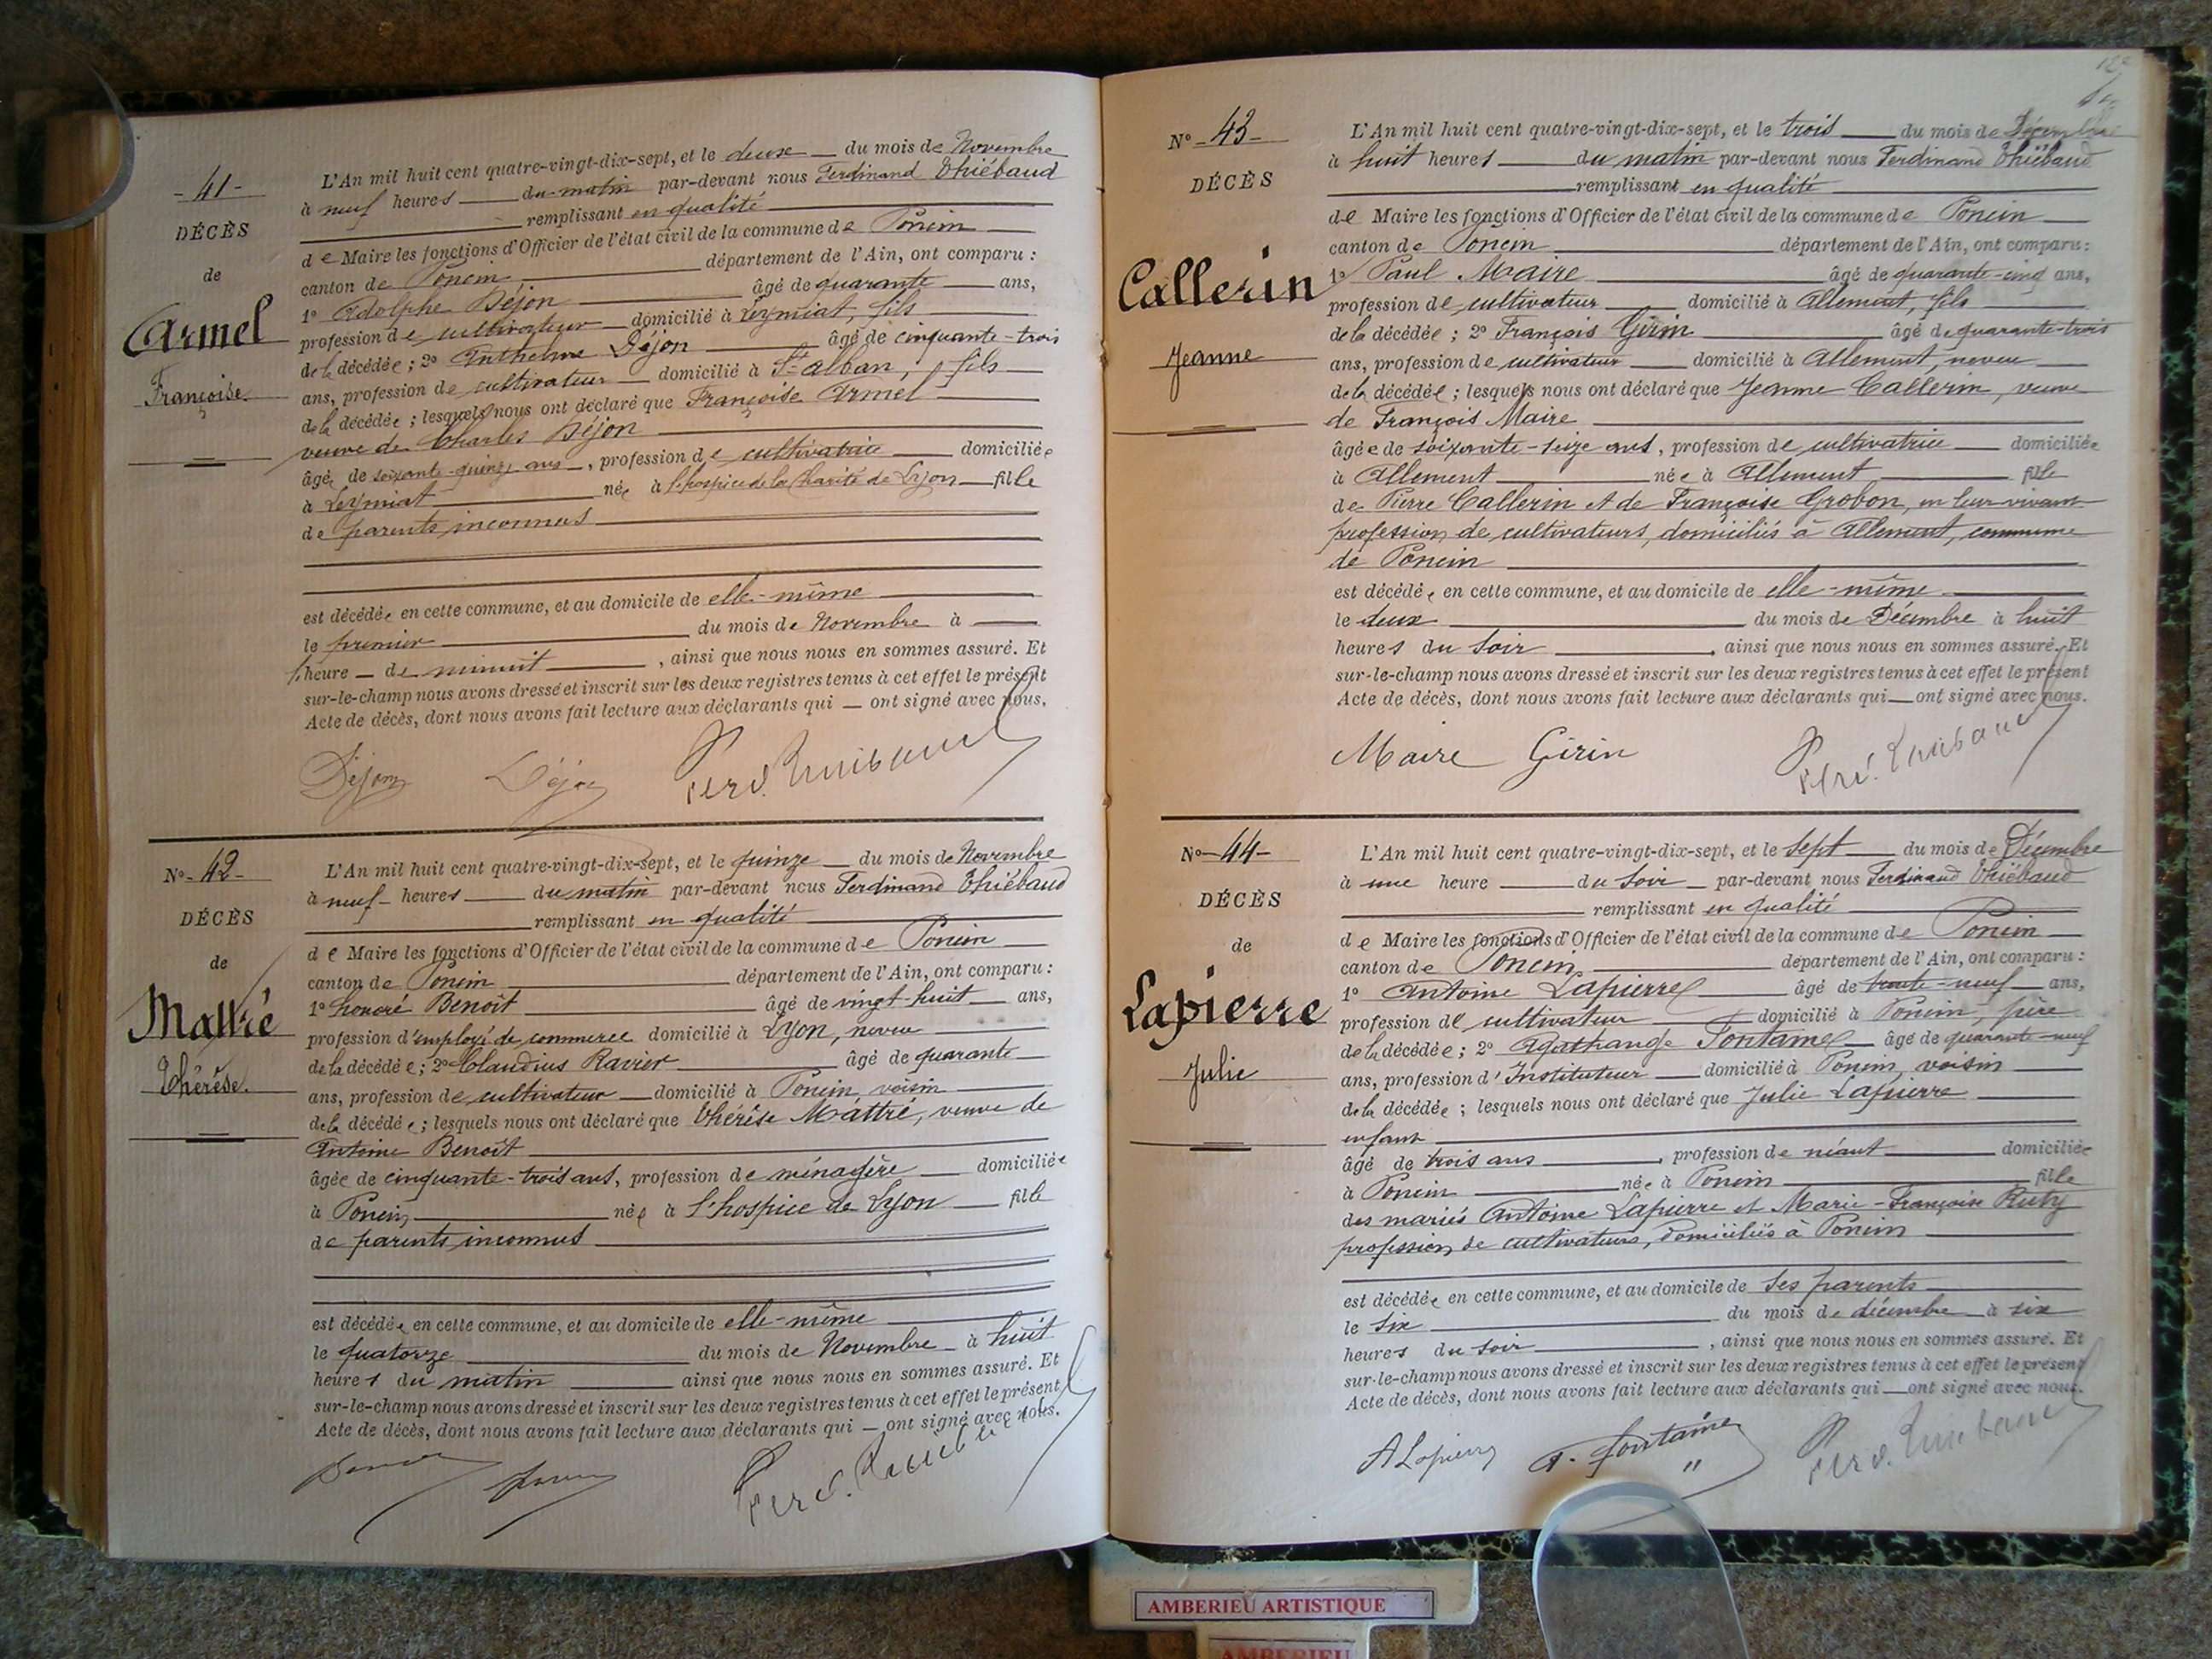 - 41 -
DÉCÈS
de
Carmel
Françoise.
L'An mil huit cent quatre-vingt-dix-sept, et le deux du mois de Novembre
à neuf heures du matin par-devant nous Ferdinand Thiébaud
remplissant en qualité
de Maire les fonctions d'Officier de l'état civil de la commune de Poncin
canton de Poncin département de l'Ain, ont comparu :
1º Adolphe Déjon âgé de quarante ans,
profession de cultivateur domicilié à Leymiat, fils
de la décédée ; 2º Anthelme Déjon âgé de cinquante-trois
ans, profession de cultivateur domicilié à St Alban, fils
de la décédée ; lesquels nous ont déclaré que Françoise Armel
veuve de Charles Déjon
âgée de soixante-quinze ans, profession de cultivatrice domiciliée
à Leymiat née à l'hospice de la Charité de Lyon fille
de parents inconnus
est décédée en cette commune, et au domicile de elle-même
le premier du mois de Novembre à
heure de minuit, ainsi que nous nous en sommes assuré. Et
sur-le-champ nous avons dressé et inscrit sur les deux registres tenus à cet effet le présent
Acte de décès, dont nous avons fait lecture aux déclarants qui ont signé avec nous.
Déjon Déjon Ferd. Thiébaud
Nº - 42 -
DÉCÈS
de
Mattré
Thérèse.
L'An mil huit cent quatre-vingt-dix-sept, et le quinze du mois de Novembre
à neuf heures du matin par-devant nous Ferdinand Thiébaud
remplissant en qualité
de Maire les fonctions d'Officier de l'état civil de la commune de Poncin
canton de Poncin département de l'Ain, ont comparu :
1º honoré Benoît âgé de vingt-huit ans,
profession d'employé de commerce domicilié à Lyon, neveu
de la décédée ; 2º Claudius Ravier âgé de quarante
ans, profession de cultivateur domicilié à Poncin, voisin
de la décédée ; lesquels nous ont déclaré que Thérèse Mattré, veuve de
Antoine Benoît
âgée de cinquante-trois ans, profession de ménagère domiciliée
à Poncin née à l'hospice de Lyon fille
de parents inconnus
est décédée en cette commune, et au domicile de elle-même
le quatorze du mois de Novembre à huit
heures du matin ainsi que nous nous en sommes assuré. Et
sur-le-champ nous avons dressé et inscrit sur les deux registres tenus à cet effet le présent
Acte de décès, dont nous avons fait lecture aux déclarants qui ont signé avec nous.
Ferd. Thiébaud
Nº - 43 -
DÉCÈS
Callerin
Jeanne
L'An mil huit cent quatre-vingt-dix-sept, et le trois du mois de Décembre
à huit heures du matin par-devant nous Ferdinand Thiébaud
remplissant en qualité
de Maire les fonctions d'Officier de l'état civil de la commune de Poncin
canton de Poncin département de l'Ain, ont comparu :
1º Paul Maire âgé de quarante-cinq ans,
profession de cultivateur domicilié à Allement, fils
de la décédée ; 2º François Girin âgé de quarante-trois
ans, profession de cultivateur domicilié à Allement, neveu
de la décédée ; lesquels nous ont déclaré que Jeanne Callerin, veuve
de François Maire
âgée de soixante-seize ans, profession de cultivatrice domiciliée
à Allement née à Allement fille
de Pierre Callerin et de Françoise Grobon, en leur vivant
profession de cultivateurs, domiciliés à Allement, commune
de Poncin
est décédée en cette commune, et au domicile de elle-même
le deux du mois de Décembre à huit
heures du soir, ainsi que nous nous en sommes assuré. Et
sur-le-champ nous avons dressé et inscrit sur les deux registres tenus à cet effet le présent
Acte de décès, dont nous avons fait lecture aux déclarants qui ont signé avec nous.
Maire Girin Ferd. Thiébaud
Nº - 44 -
DÉCÈS
de
Lapierre
Julie
L'An mil huit cent quatre-vingt-dix-sept, et le sept du mois de Décembre
à une heure du soir par-devant nous Ferdinand Thiébaud
remplissant en qualité
de Maire les fonctions d'Officier de l'état civil de la commune de Poncin
canton de Poncin département de l'Ain, ont comparu :
1º Antoine Lapierre âgé de trente-neuf ans,
profession de cultivateur domicilié à Poncin, père
de la décédée ; 2º Agathange Fontaine âgé de quarante-neuf
ans, profession d'Instituteur domicilié à Poncin, voisin
de la décédée ; lesquels nous ont déclaré que Julie Lapierre
enfant
âgé de trois ans, profession de néant domiciliée
à Poncin née à Poncin fille
des mariés Antoine Lapierre et Marie-Françoise Ruty
profession de cultivateurs, domiciliés à Poncin
est décédée en cette commune, et au domicile de ses parents
le six du mois de décembre à six
heures du soir, ainsi que nous nous en sommes assuré. Et
sur-le-champ nous avons dressé et inscrit sur les deux registres tenus à cet effet le présent
Acte de décès, dont nous avons fait lecture aux déclarants qui ont signé avec nous.
A Lapierre A. Fontaine Ferd. Thiébaud
AMBERIEU ARTISTIQUE
AMBERIEU